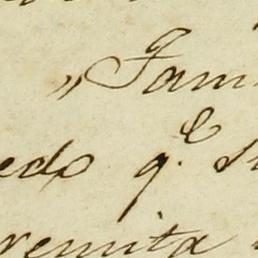 „Fam
edo q.e
remita